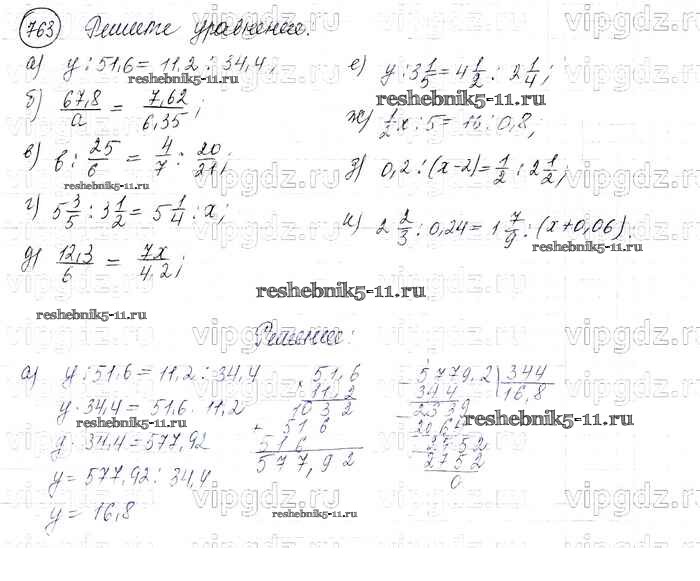 763 Решите уравнение.
а) y : 51,6 = 11,2 : 34,4;
б) 67,8/a = 7,62/6,35;
в) b : 25/6 = 4/7 : 20/21;
г) 5 3/5 : 3 1/2 = 5 1/4 : x;
д) 12,3/6 = 7x/4,2;
е) y : 3 1/5 = 4 1/2 : 2 1/4;
ж) 1/2 x : 5 = 16 : 0,8;
з) 0,2 : (x-2) = 1/2 : 2 1/2;
и) 2 2/3 : 0,24 = 1 7/9 : (x+0,06).
Решение:
а) y : 51,6 = 11,2 : 34,4
y · 34,4 = 51,6 · 11,2
y · 34,4 = 577,92
y = 577,92 : 34,4
y = 16,8
51,6
11,2
1032
+ 516
516
577,92
5779,2 344
344 16,8
2339
2064
2752
2752
0
reshebnik5-11.ru
reshebnik5-11.ru
reshebnik5-11.ru
reshebnik5-11.ru
reshebnik5-11.ru
reshebnik5-11.ru
reshebnik5-11.ru
reshebnik5-11.ru
reshebnik5-11.ru
reshebnik5-11.ru
vipgdz.ru